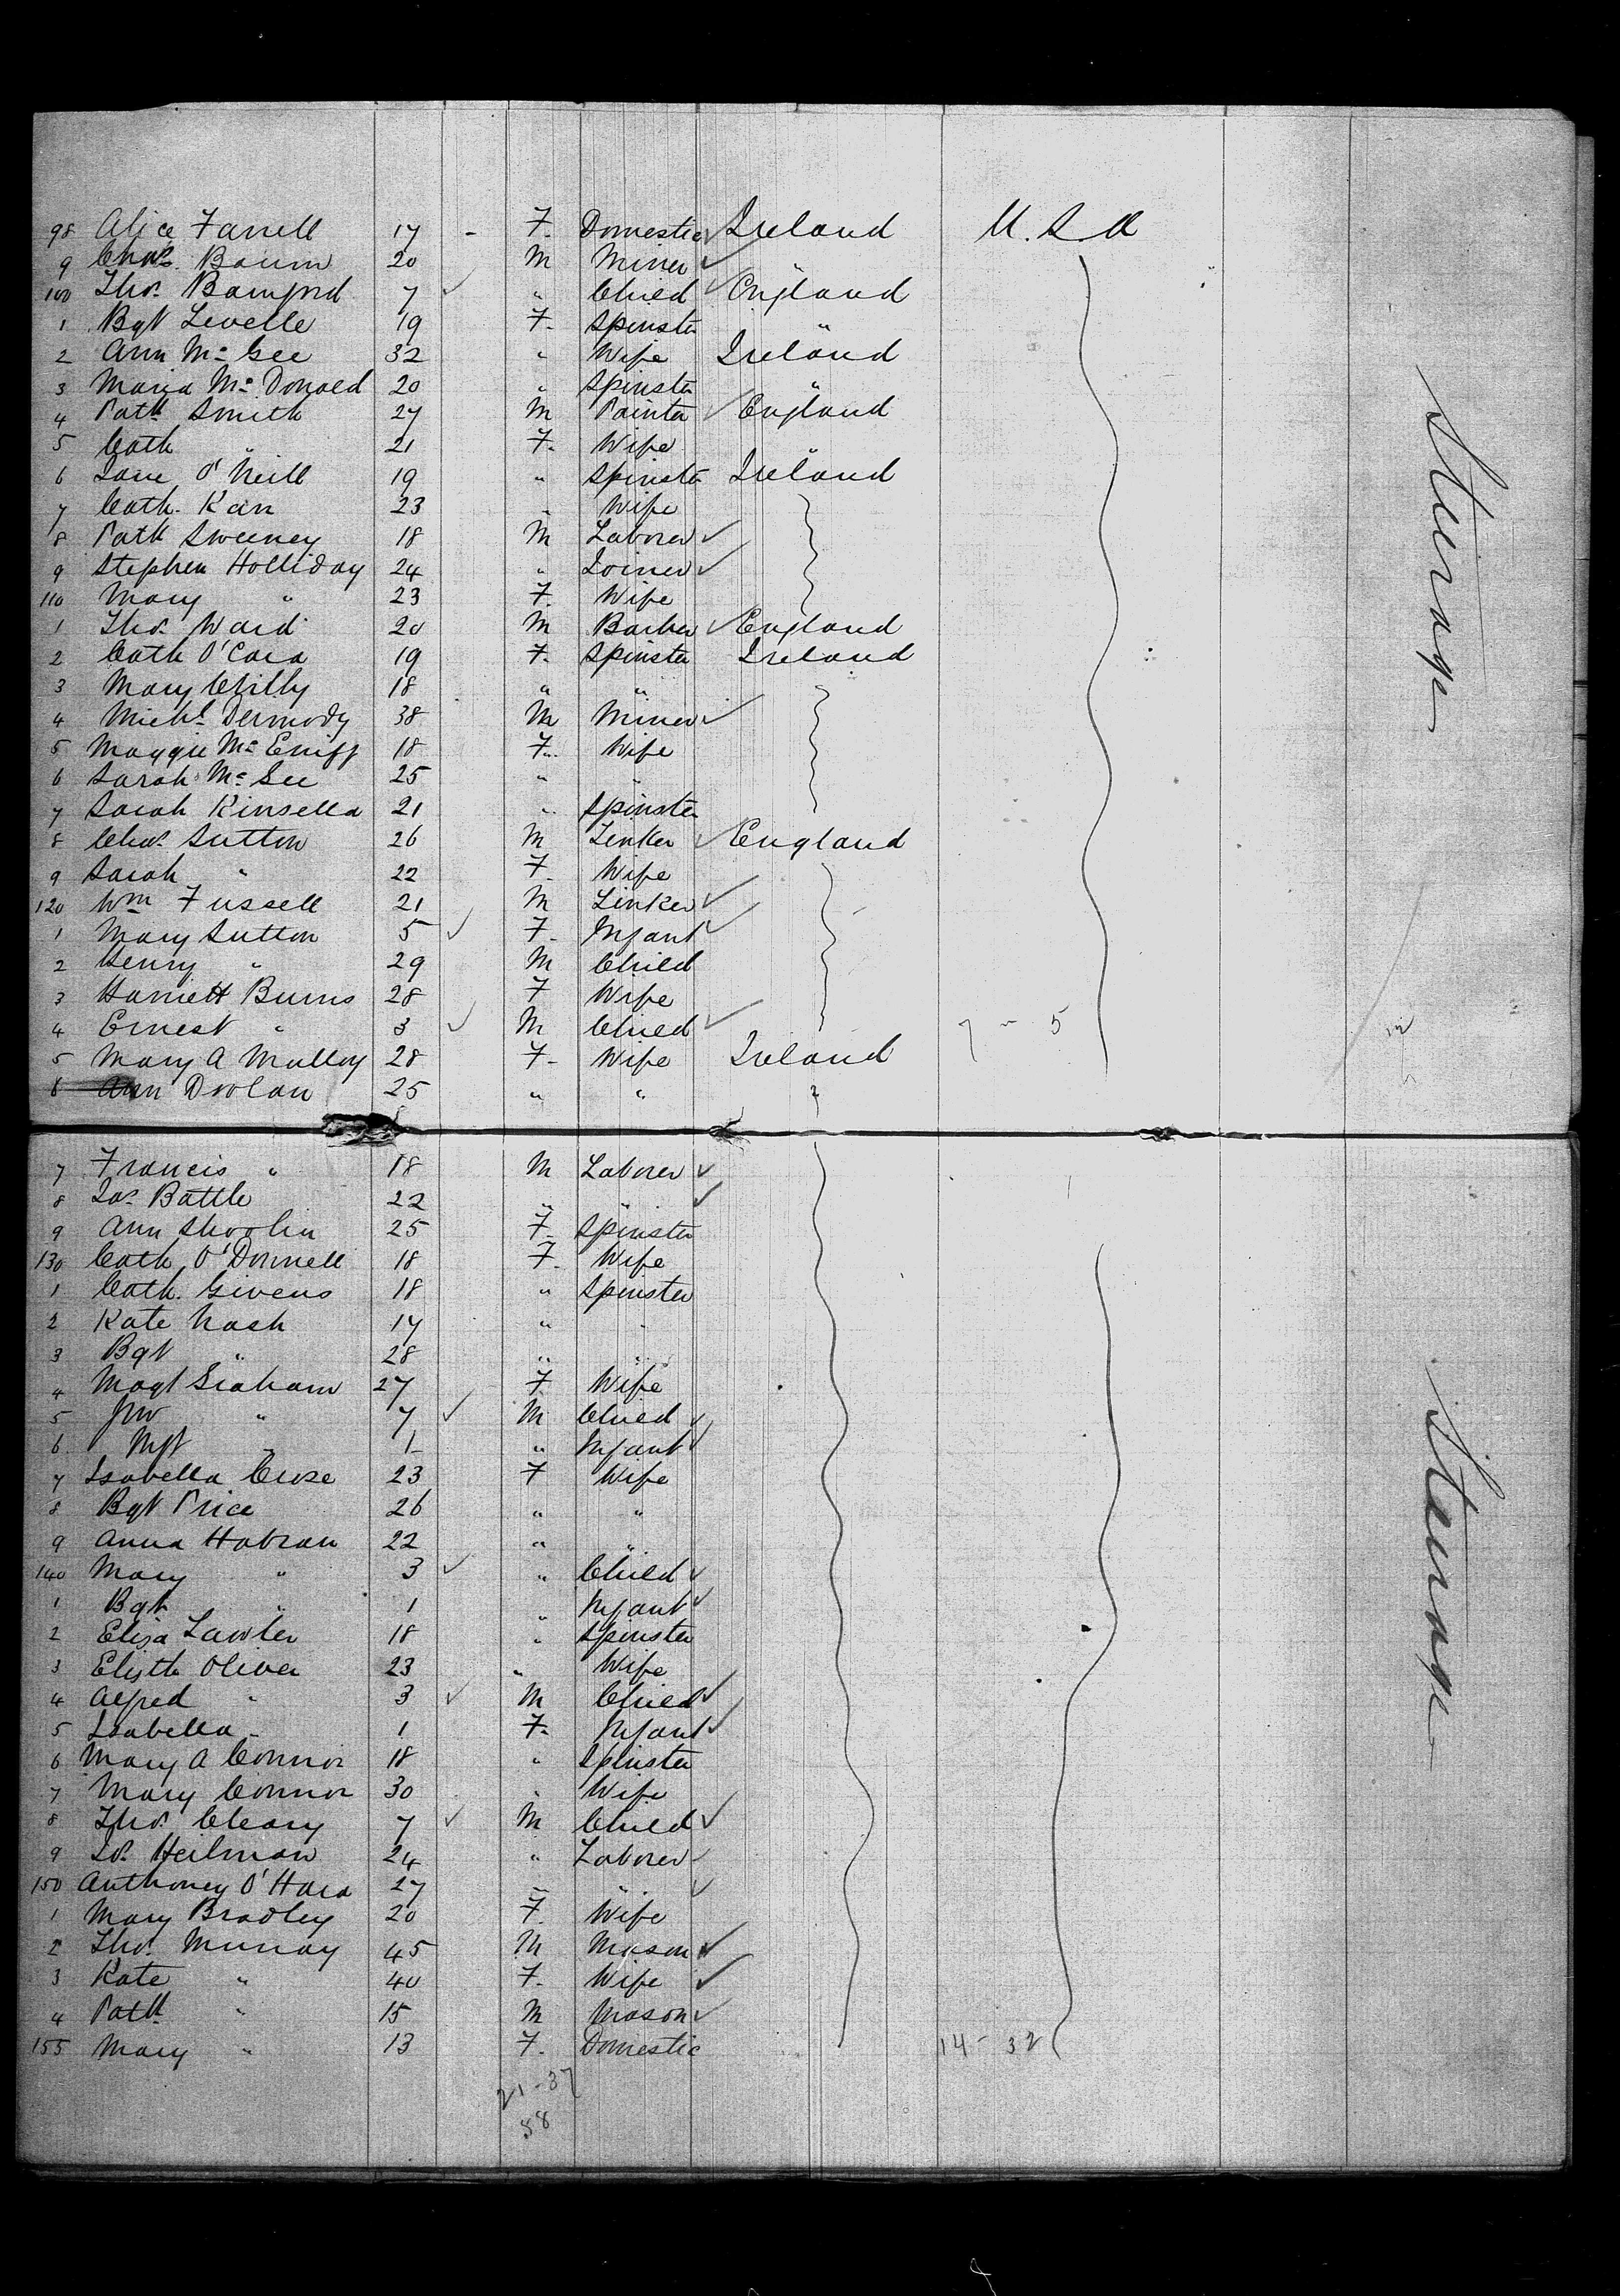 98 Alice Farrell 17 - F. Domestic Ireland U.S.A
9 Chas. Baum 20 M Miner "
100 Thos. Bamford 7 " Child England
1 Bgt Levelle 19 F. Spinster "
2 Ann Mc Gee 32 " Wife Ireland
3 Maria Mc Donald 20 " Spinster "
4 Patk Smith 27 M Painter England
5 Cath " 21 F. Wife "
6 Jane O'Neill 19 " Spinster Ireland
7 Cath. Karr 23 " Wife
8 Patk Sweeney 18 M Laborer
9 Stephen Holliday 24 " Joiner
110 Mary " 23 F. Wife
1 Thos. Ward 20 M Barber England
2 Cath O'Cara 19 F. Spinster Ireland
3 Mary 18 " "
4 Michl Dermody 38 M Miner
5 Maggie Mc Eniff 18 F. Wife
6 Sarah Mc Gee 25 " "
7 Sarah Kinsella 21 " Spinster
8 Chas. Sutton 26 M England
9 Sarah " 22 F. Wife
120 Wm Fussell 21 M
1 Mary Sutton 5 F. Infant
2 Henry " 29 M Child
3 Harriett Burns 28 F Wife
4 Ernest " 3 M Child 7 - 5
5 Mary A Malloy 28 F. Wife Ireland
6 Ann Doolan 25 " " "
Steerage
7 Francis " 18 M Laborer
8 Jas. Battle 22 " "
9 Ann Shoolin 25 F. Spinster
130 Cath O'Donnell 18 F. Wife
1 Cath. Givens 18 " Spinster
2 Kate Nash 17 " "
3 Bgt " 28 " "
4 Magt Graham 27 F. Wife
5 Jno " 7 M Child
6 " 1 " Infant
7 Isabella Cruse 23 F Wife
8 Bgt Price 26 " "
9 Anna Hobran 22 " "
140 Mary " 3 " Child
1 Bgt " 1 " Infant
2 Eliza Lawler 18 " Spinster
3 Elizth Oliver 23 " Wife
4 Alfred " 3 M Child
5 Isabella " 1 F. Infant
6 Mary A Connor 18 " Spinster
7 Mary Connor 30 " Wife
8 Thos. Cleary 7 M Child
9 Heilman 24 " Laborer
150 Anthoney O'Hara 27 " "
1 Mary Bradley 20 F. Wife
2 Thos. Murray 45 M Mason
3 Kate " 40 F. Wife
4 Patk " 15 M Mason
155 Mary " 13 F. Domestic 14 - 32
Steerage
21 - 37
58